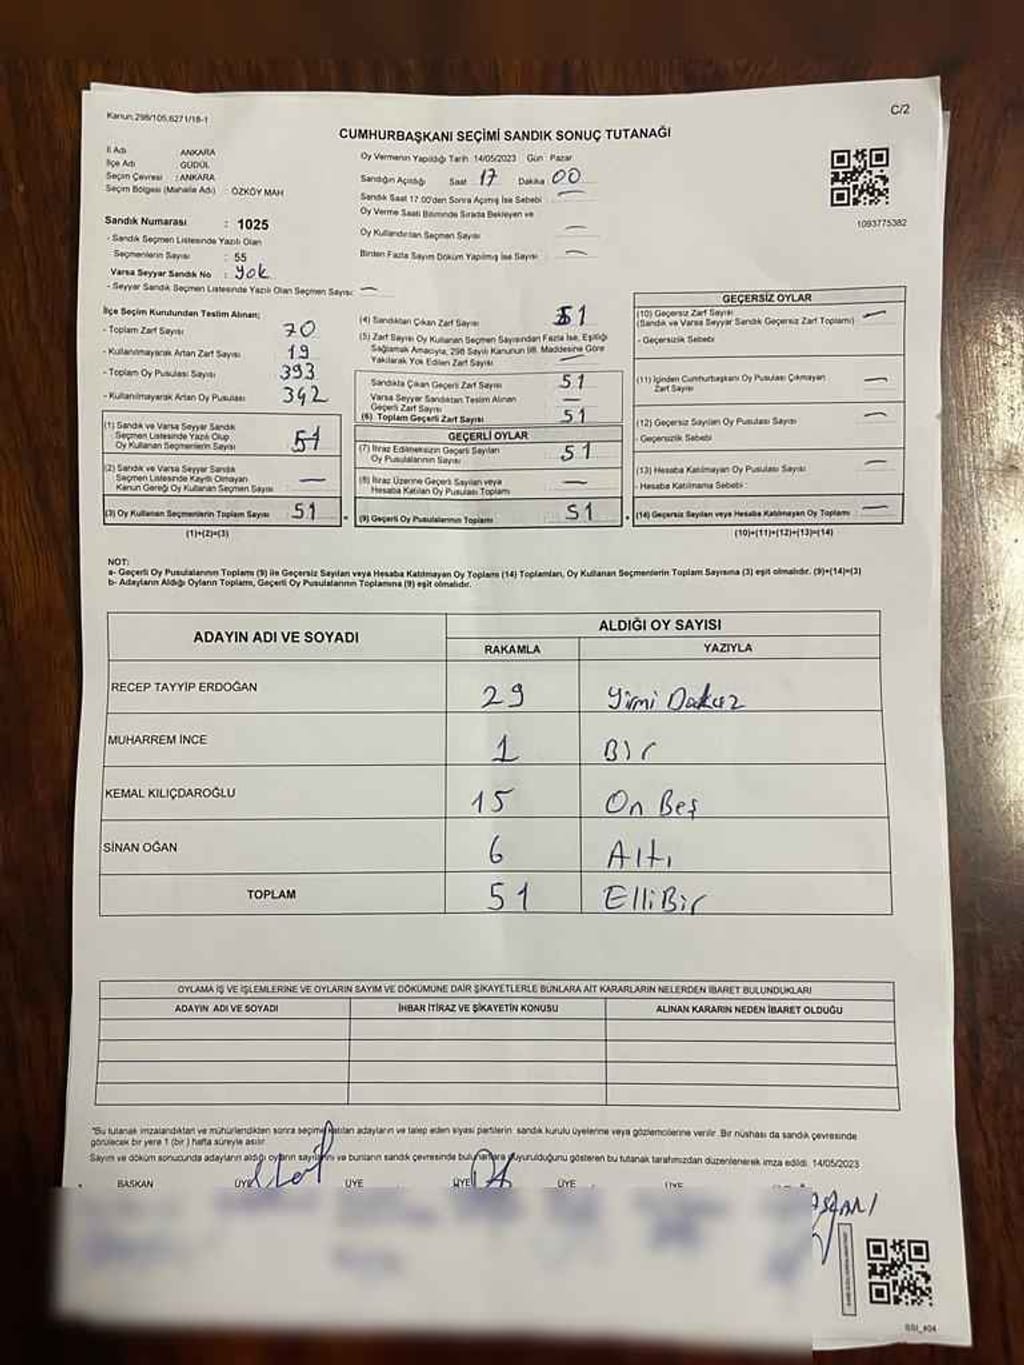 Kanun:298/105,6271/18-1
C/2
CUMHURBAŞKANI SEÇİMİ SANDIK SONUÇ TUTANAĞI
İl Adı ANKARA
İlçe Adı : GÜDÜL
Seçim Çevresi : ANKARA
Seçim Bölgesi (Mahalle Adı) : ÖZKÖY MAH
Sandık Numarası : 1025
- Sandık Seçmen Listesinde Yazılı Olan
Seçmenlerin Sayısı : 55
Varsa Seyyar Sandık No : Yok
- Seyyar Sandık Seçmen Listesinde Yazılı Olan Seçmen Sayısı: —
Oy Vermenin Yapıldığı Tarih 14/05/2023 Gün : Pazar
Sandığın Açıldığı Saat 17 Dakika 00
Sandık Saat 17:00'den Sonra Açılmış İse Sebebi : —
Oy Verme Saati Bitiminde Sırada Bekleyen ve
Oy Kullandırılan Seçmen Sayısı —
Birden Fazla Sayım Döküm Yapılmış İse Sayısı —
1093775382
İlçe Seçim Kurulundan Teslim Alınan;
- Toplam Zarf Sayısı 70
- Kullanılmayarak Artan Zarf Sayısı 19
- Toplam Oy Pusulası Sayısı 393
- Kullanılmayarak Artan Oy Pusulası 342
(1) Sandık ve Varsa Seyyar Sandık
Seçmen Listesinde Yazılı Olup
Oy Kullanan Seçmenlerin Sayısı 51
(2) Sandık ve Varsa Seyyar Sandık
Seçmen Listesinde Kayıtlı Olmayan
Kanun Gereği Oy Kullanan Seçmen Sayısı —
(3) Oy Kullanan Seçmenlerin Toplam Sayısı 51
(1)+(2)=(3)
(4) Sandıktan Çıkan Zarf Sayısı 51
(5) Zarf Sayısı Oy Kullanan Seçmen Sayısından Fazla İse, Eşitliği
Sağlamak Amacıyla, 298 Sayılı Kanunun 98. Maddesine Göre
Yakılarak Yok Edilen Zarf Sayısı —
Sandıkta Çıkan Geçerli Zarf Sayısı 51
Varsa Seyyar Sandıktan Teslim Alınan
Geçerli Zarf Sayısı —
(6) Toplam Geçerli Zarf Sayısı 51
GEÇERLİ OYLAR
(7) İtiraz Edilmeksizin Geçerli Sayılan
Oy Pusulalarının Sayısı 51
(8) İtiraz Üzerine Geçerli Sayılan veya
Hesaba Katılan Oy Pusulası Toplamı —
(9) Geçerli Oy Pusulalarının Toplamı 51
GEÇERSİZ OYLAR
(10) Geçersiz Zarf Sayısı
(Sandık ve Varsa Seyyar Sandık Geçersiz Zarf Toplamı) —
- Geçersizlik Sebebi
(11) İçinden Cumhurbaşkanı Oy Pusulası Çıkmayan
Zarf Sayısı —
(12) Geçersiz Sayılan Oy Pusulası Sayısı —
- Geçersizlik Sebebi
(13) Hesaba Katılmayan Oy Pusulası Sayısı —
- Hesaba Katılmama Sebebi :
(14) Geçersiz Sayılan veya Hesaba Katılmayan Oy Toplamı —
(10)+(11)+(12)+(13)=(14)
NOT:
a- Geçerli Oy Pusulalarının Toplamı (9) ile Geçersiz Sayılan veya Hesaba Katılmayan Oy Toplamı (14) Toplamları, Oy Kullanan Seçmenlerin Toplam Sayısına (3) eşit olmalıdır. (9)+(14)=(3)
b- Adayların Aldığı Oyların Toplamı, Geçerli Oy Pusulalarının Toplamına (9) eşit olmalıdır.
ADAYIN ADI VE SOYADI
ALDIĞI OY SAYISI
RAKAMLA YAZIYLA
RECEP TAYYİP ERDOĞAN 29 Yirmi Dokuz
MUHARREM İNCE 1 Bir
KEMAL KILIÇDAROĞLU 15 On Beş
SİNAN OĞAN 6 Altı
TOPLAM 51 ElliBir
OYLAMA İŞ VE İŞLEMLERİNE VE OYLARIN SAYIM VE DÖKÜMÜNE DAİR ŞİKAYETLERLE BUNLARA AİT KARARLARIN NELERDEN İBARET BULUNDUKLARI
ADAYIN ADI VE SOYADI İHBAR İTİRAZ VE ŞİKAYETİN KONUSU ALINAN KARARIN NEDEN İBARET OLDUĞU
"Bu tutanak imzalandıktan ve mühürlendikten sonra seçime katılan adayların ve talep eden siyasi partilerin sandık kurulu üyelerine veya gözlemcilerine verilir. Bir nüshası da sandık çevresinde
görülecek bir yere 1 (bir) hafta süreyle asılır.
Sayım ve döküm sonucunda adayların aldığı oyların sayılarını ve bunların sandık çevresinde bulunanlara duyurulduğunu gösteren bu tutanak tarafımızdan düzenlenerek imza edildi. 14/05/2023
BAŞKAN ÜYE ÜYE ÜYE ÜYE ÜYE